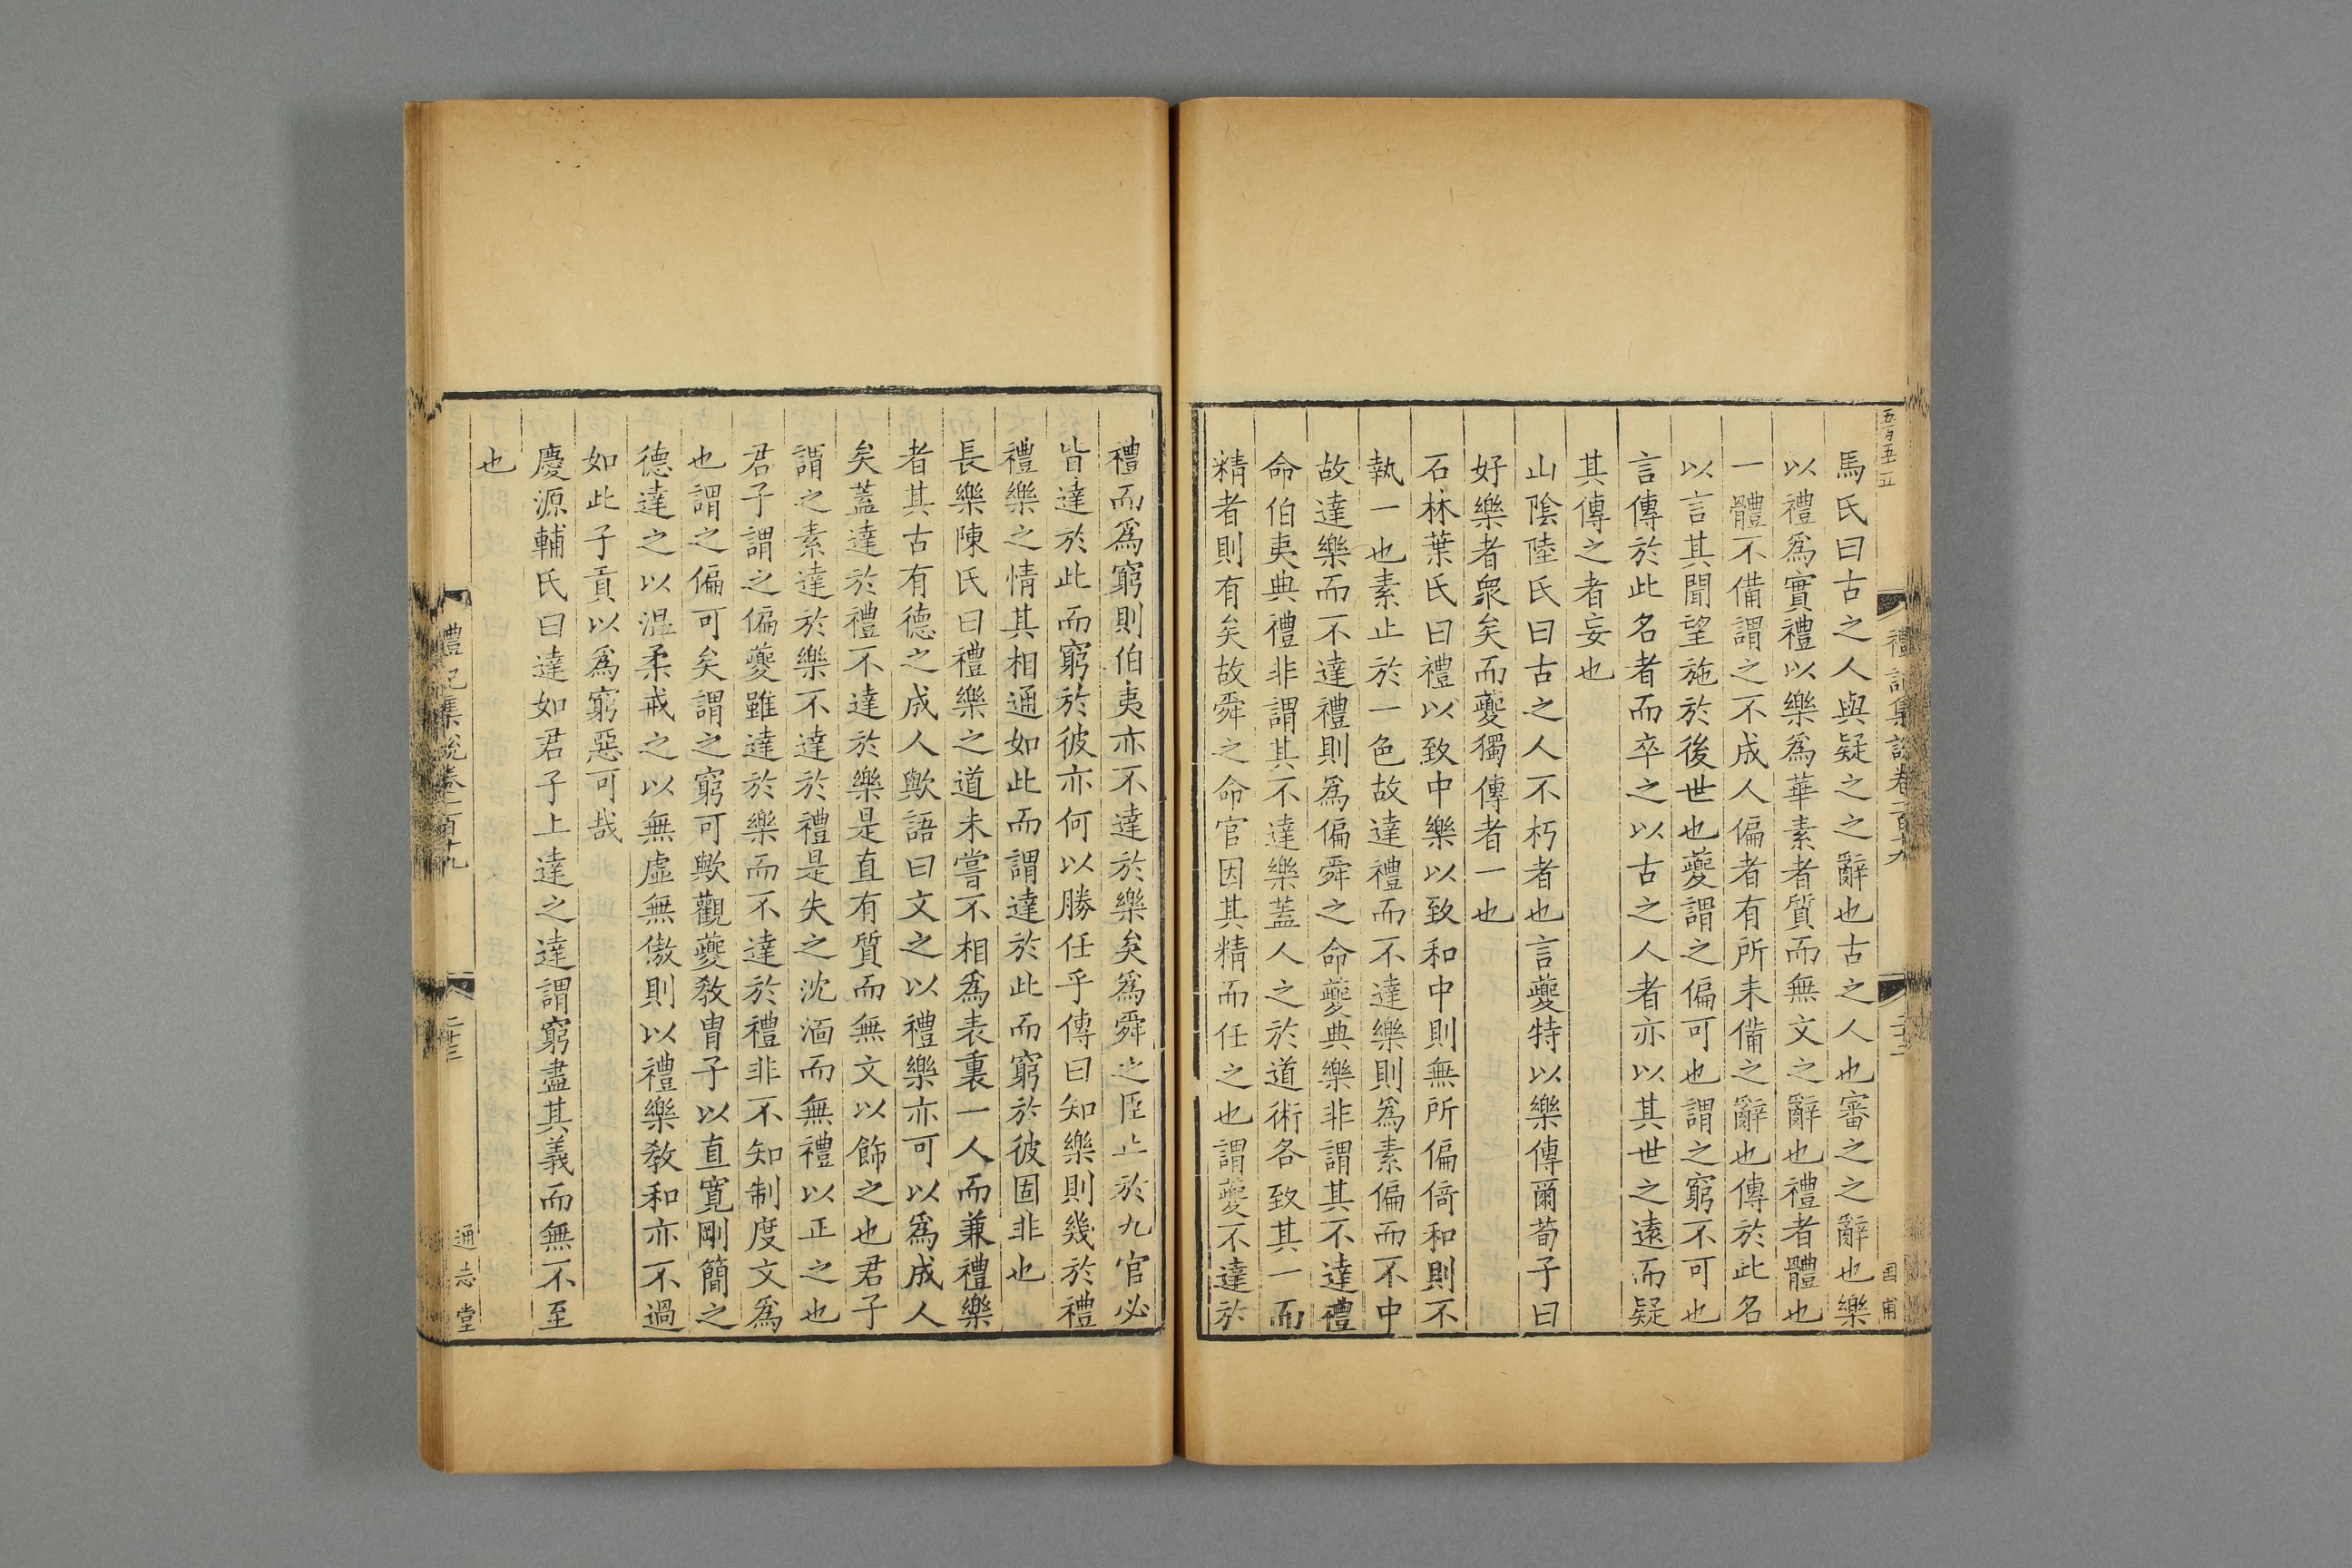 馬氏曰古之人與疑之之辭也古之人也審之之辭也樂
以禮爲實禮以樂爲華素者質而無文之辭也禮者體也
一體不備謂之不成人偏者有所未備之辭也傳於此名
以言其聞望施於後世也夔謂之偏可也謂之窮不可也
言傳於此名者而卒之以古之人者亦以其世之遠而疑
其傳之者妄也
山陰陸氏曰古之人不朽者也言夔特以樂傳爾荀子曰
好樂者衆矣而夔獨傳者一也
石林葉氏曰禮以致中樂以致和中則無所偏倚和則不
執一也素止於一色故達禮而不達樂則爲素偏而不中
故達樂而不達禮則爲偏舜之命夔典樂非謂其不達禮
命伯夷典禮非謂其不達樂蓋人之於道術各致其一而
精者則有矣故舜之命官因其精而任之也謂夔不達於
禮而爲窮則伯夷亦不達於樂矣爲舜之臣止於九官必
皆達於此而窮於彼亦何以勝任乎傳曰知樂則幾於禮
禮樂之情其相通如此而謂達於此而窮於彼固非也
長樂陳氏曰禮樂之道未嘗不相爲表裏一人而兼禮樂
者其古有德之成人歟語曰文之以禮樂亦可以爲成人
矣蓋達於禮不達於樂是直有質而無文以飾之也君子
謂之素達於樂不達於禮是失之沈湎而無禮以正之也
君子謂之偏夔雖達於樂而不達於禮非不知制度文爲
也謂之偏可矣謂之窮可歟觀夔教胄子以直寬剛簡之
德達之以温柔戒之以無虛無傲則以禮樂教和亦不過
如此子貢以爲窮惡可哉
慶源輔氏曰達如君子上達之達謂窮盡其義而無不至
也
禮記集說卷一百十九
通志堂